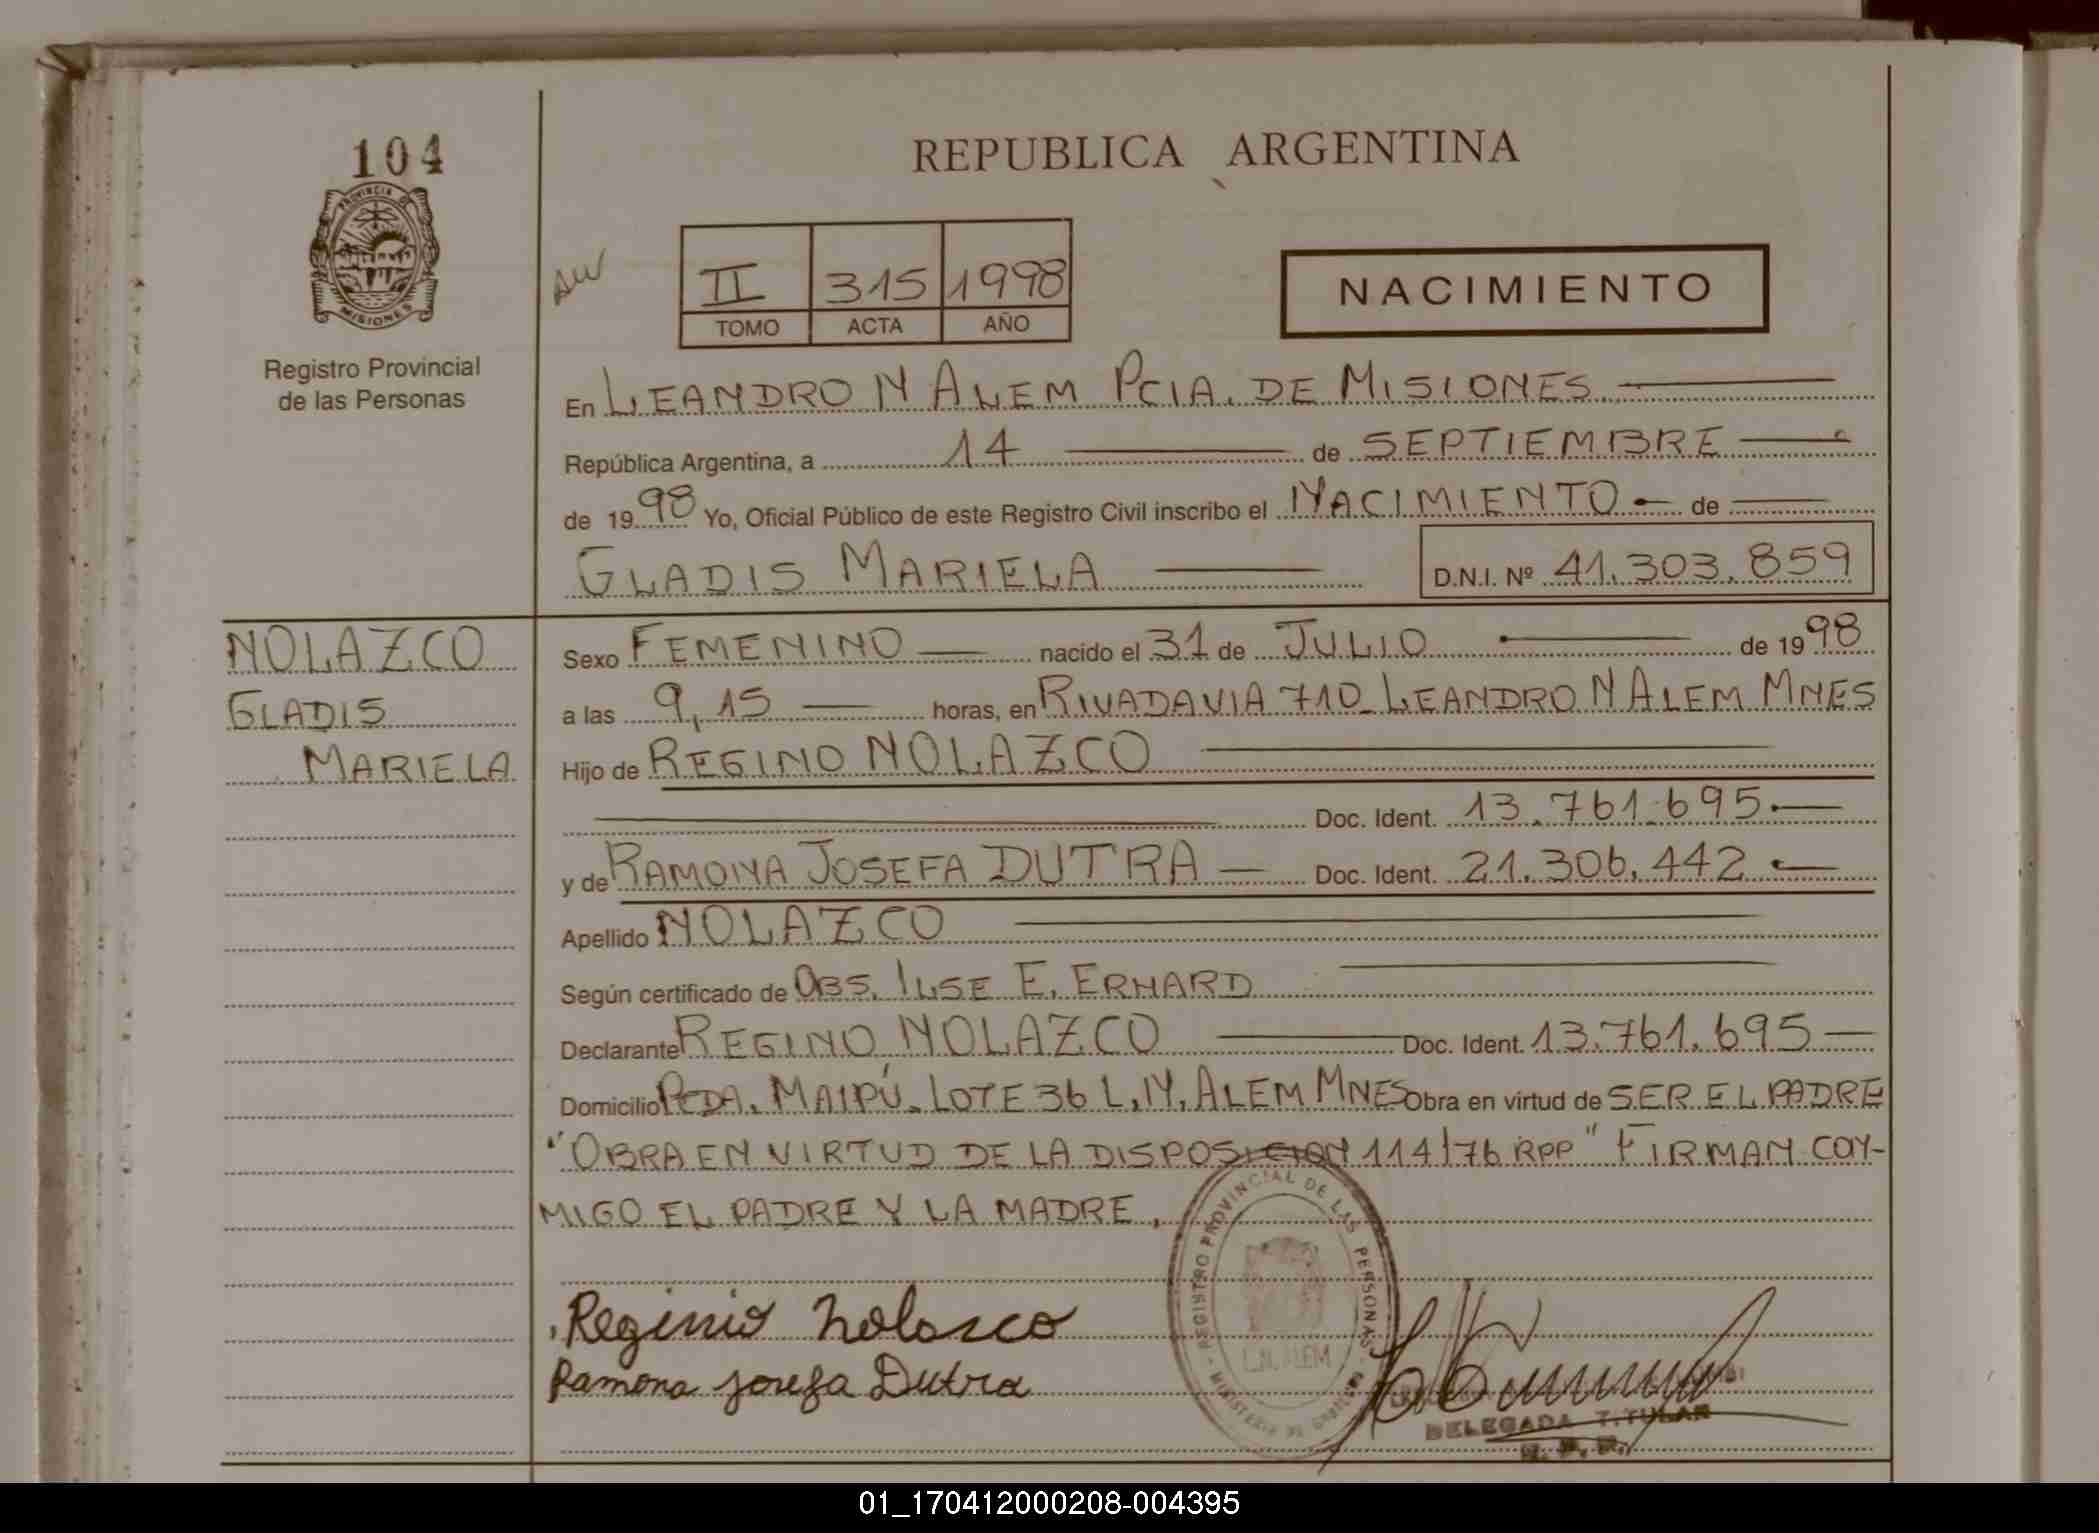 104
REPUBLICA ARGENTINA
PROVINCIA DE
MISIONES
Registro Provincial
de las Personas
II 315 1998
TOMO ACTA AÑO
NACIMIENTO
En LEANDRO N ALEM PCIA. DE MISIONES
República Argentina, a 14 de SEPTIEMBRE
de 1998 Yo, Oficial Público de este Registro Civil inscribo el NACIMIENTO de
GLADIS MARIELA D.N.I. Nº 41.303.859
NOLAZCO
GLADIS
MARIELA
Sexo FEMENINO nacido el 31 de JULIO de 1998
a las 9,15 horas, en RIVADAVIA 710_LEANDRO N ALEM MNES
Hijo de REGINO NOLAZCO
Doc. Ident. 13.761.695.
y de RAMONA JOSEFA DUTRA Doc. Ident. 21.306.442
Apellido NOLAZCO
Según certificado de OBS. ILSE E. ERHARD
Declarante REGINO NOLAZCO Doc. Ident. 13.761.695
Domicilio PCDA. MAIPÚ_LOTE 36 L.N.ALEM MNES Obra en virtud de SER EL PADRE
"OBRA EN VIRTUD DE LA DISPOSICION 114/76 RPP" FIRMAN CON-
MIGO EL PADRE Y LA MADRE.
REGISTRO PROVINCIAL DE LAS PERSONAS
L.N. ALEM
MINISTERIO DE GOBIERNO
Reginio Nolasco
Ramona Josefa Dutra
DELEGADA TITULAR
R. P. P.
01_170412000208-004395